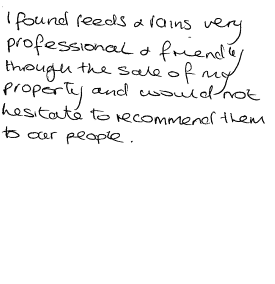 I found reeds & rains very
professional & friendly
through the sale of my
property and would not
hesitate to recommend them
to our people.